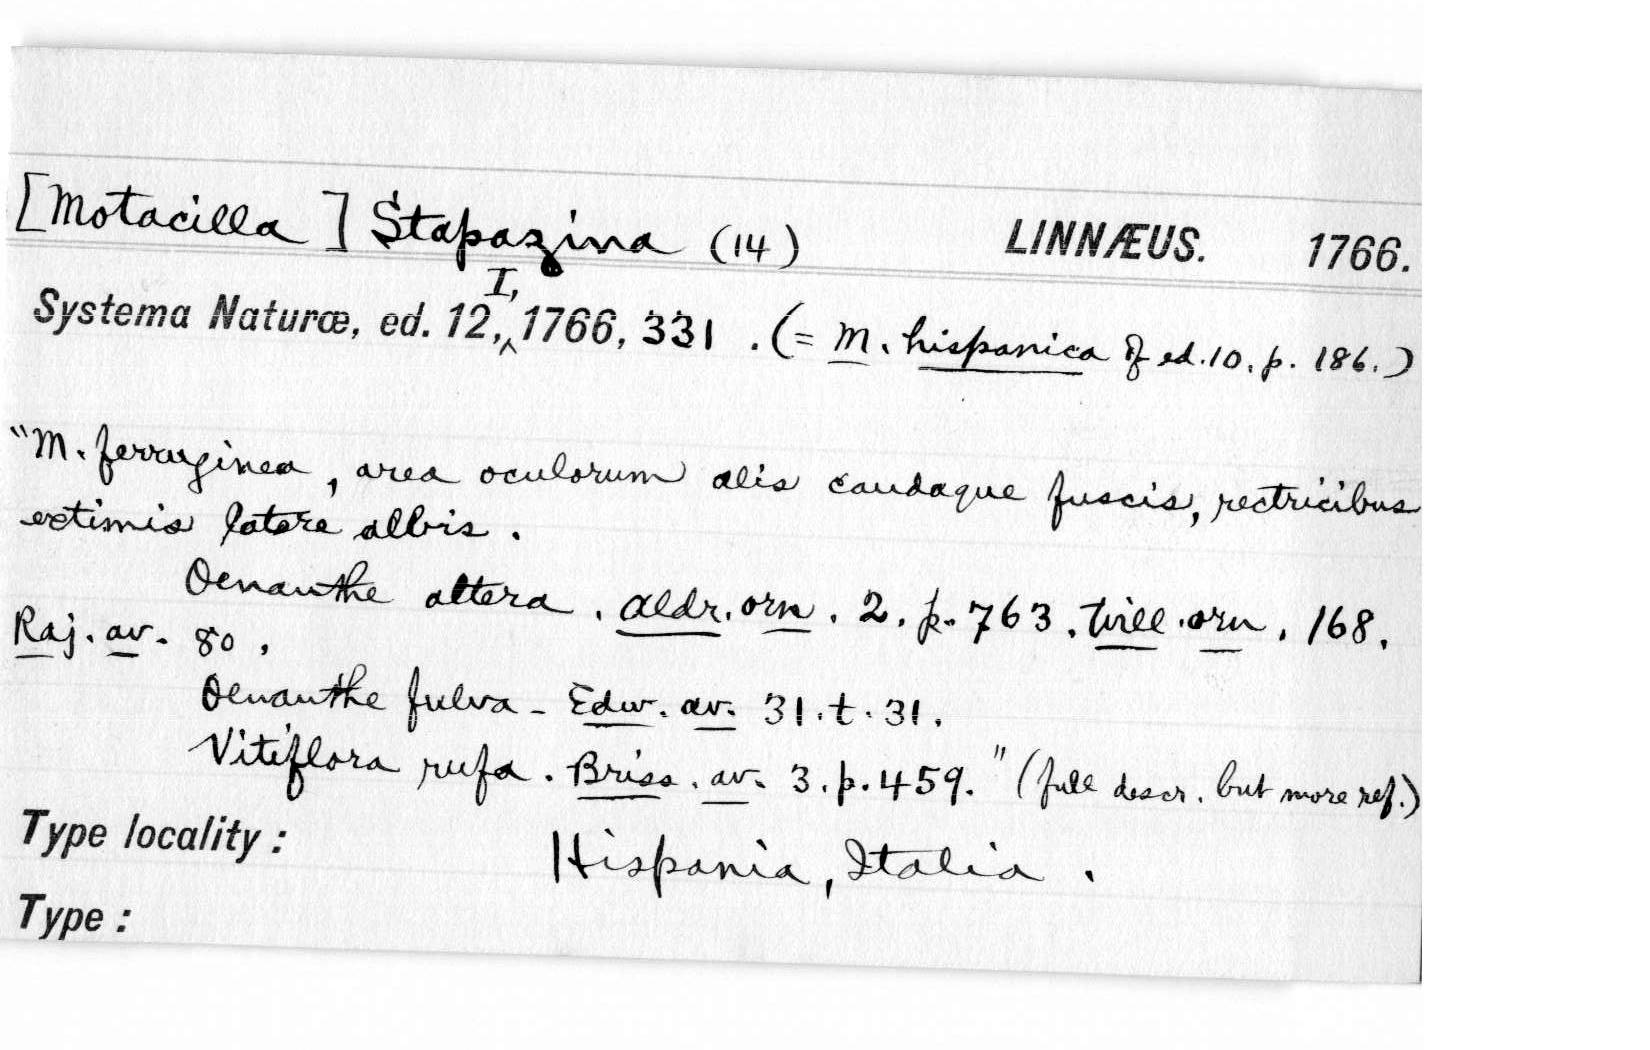 [Motacilla] Stapazina (14) LINNÆUS. 1766.
Systema Naturæ, ed. 12, I, 1766, 331. (= M. hispanica of ed. 10. p. 186.)
"M. ferruginea, area oculorum alis caudaque fuscis, rectricibus
extimis latere albis.
Oenanthe altera. Aldr. orn. 2. p. 763. Will. orn. 168.
Raj. av. 80.
Oenanthe fulva - Edw. av. 31. t. 31.
Vitiflora rufa. Briss. av. 3. p. 459." (full descr. but more ref.)
Type locality: Hispania, Italia.
Type: